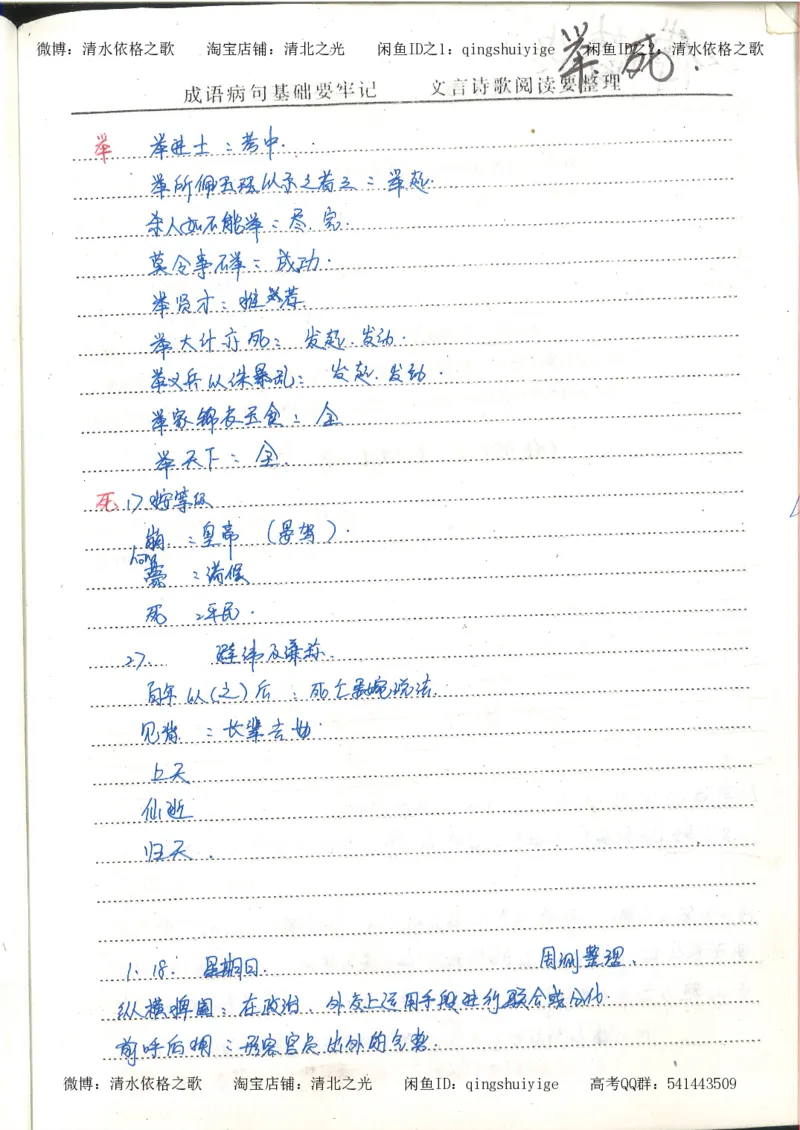 微博：清水依格之歌 淘宝店铺：清北之光 闲鱼ID之1：qingshuiyige 闲鱼ID之2：清水依格之歌
举.死.
成语病句基础要牢记 文言诗歌阅读要整理
举 举进士：考中.
举所佩玉玦以示之者三：举起.
杀人如不能举：尽.完.
莫令事不举：成功.
举贤才：推荐.
举大计亦死：发起.发动.
举义兵以诛暴乱：发起.发动.
举家锦衣玉食：全
举天下：全.
死 1> 按等级
崩：皇帝（晏驾）.
hong
薨：诸侯
死：平民.
2>. 避讳及谦称.
百年以（之）后：死亡委婉说法.
见背：长辈去世.
上天
仙逝
归天.
1.18. 星期日. 周测整理.
纵横捭阖：在政治、外交上运用手段进行联合或分化.
前呼后拥：形容官员出外的气势.
微博：清水依格之歌 淘宝店铺：清北之光 闲鱼ID：qingshuiyige 高考QQ群：541443509